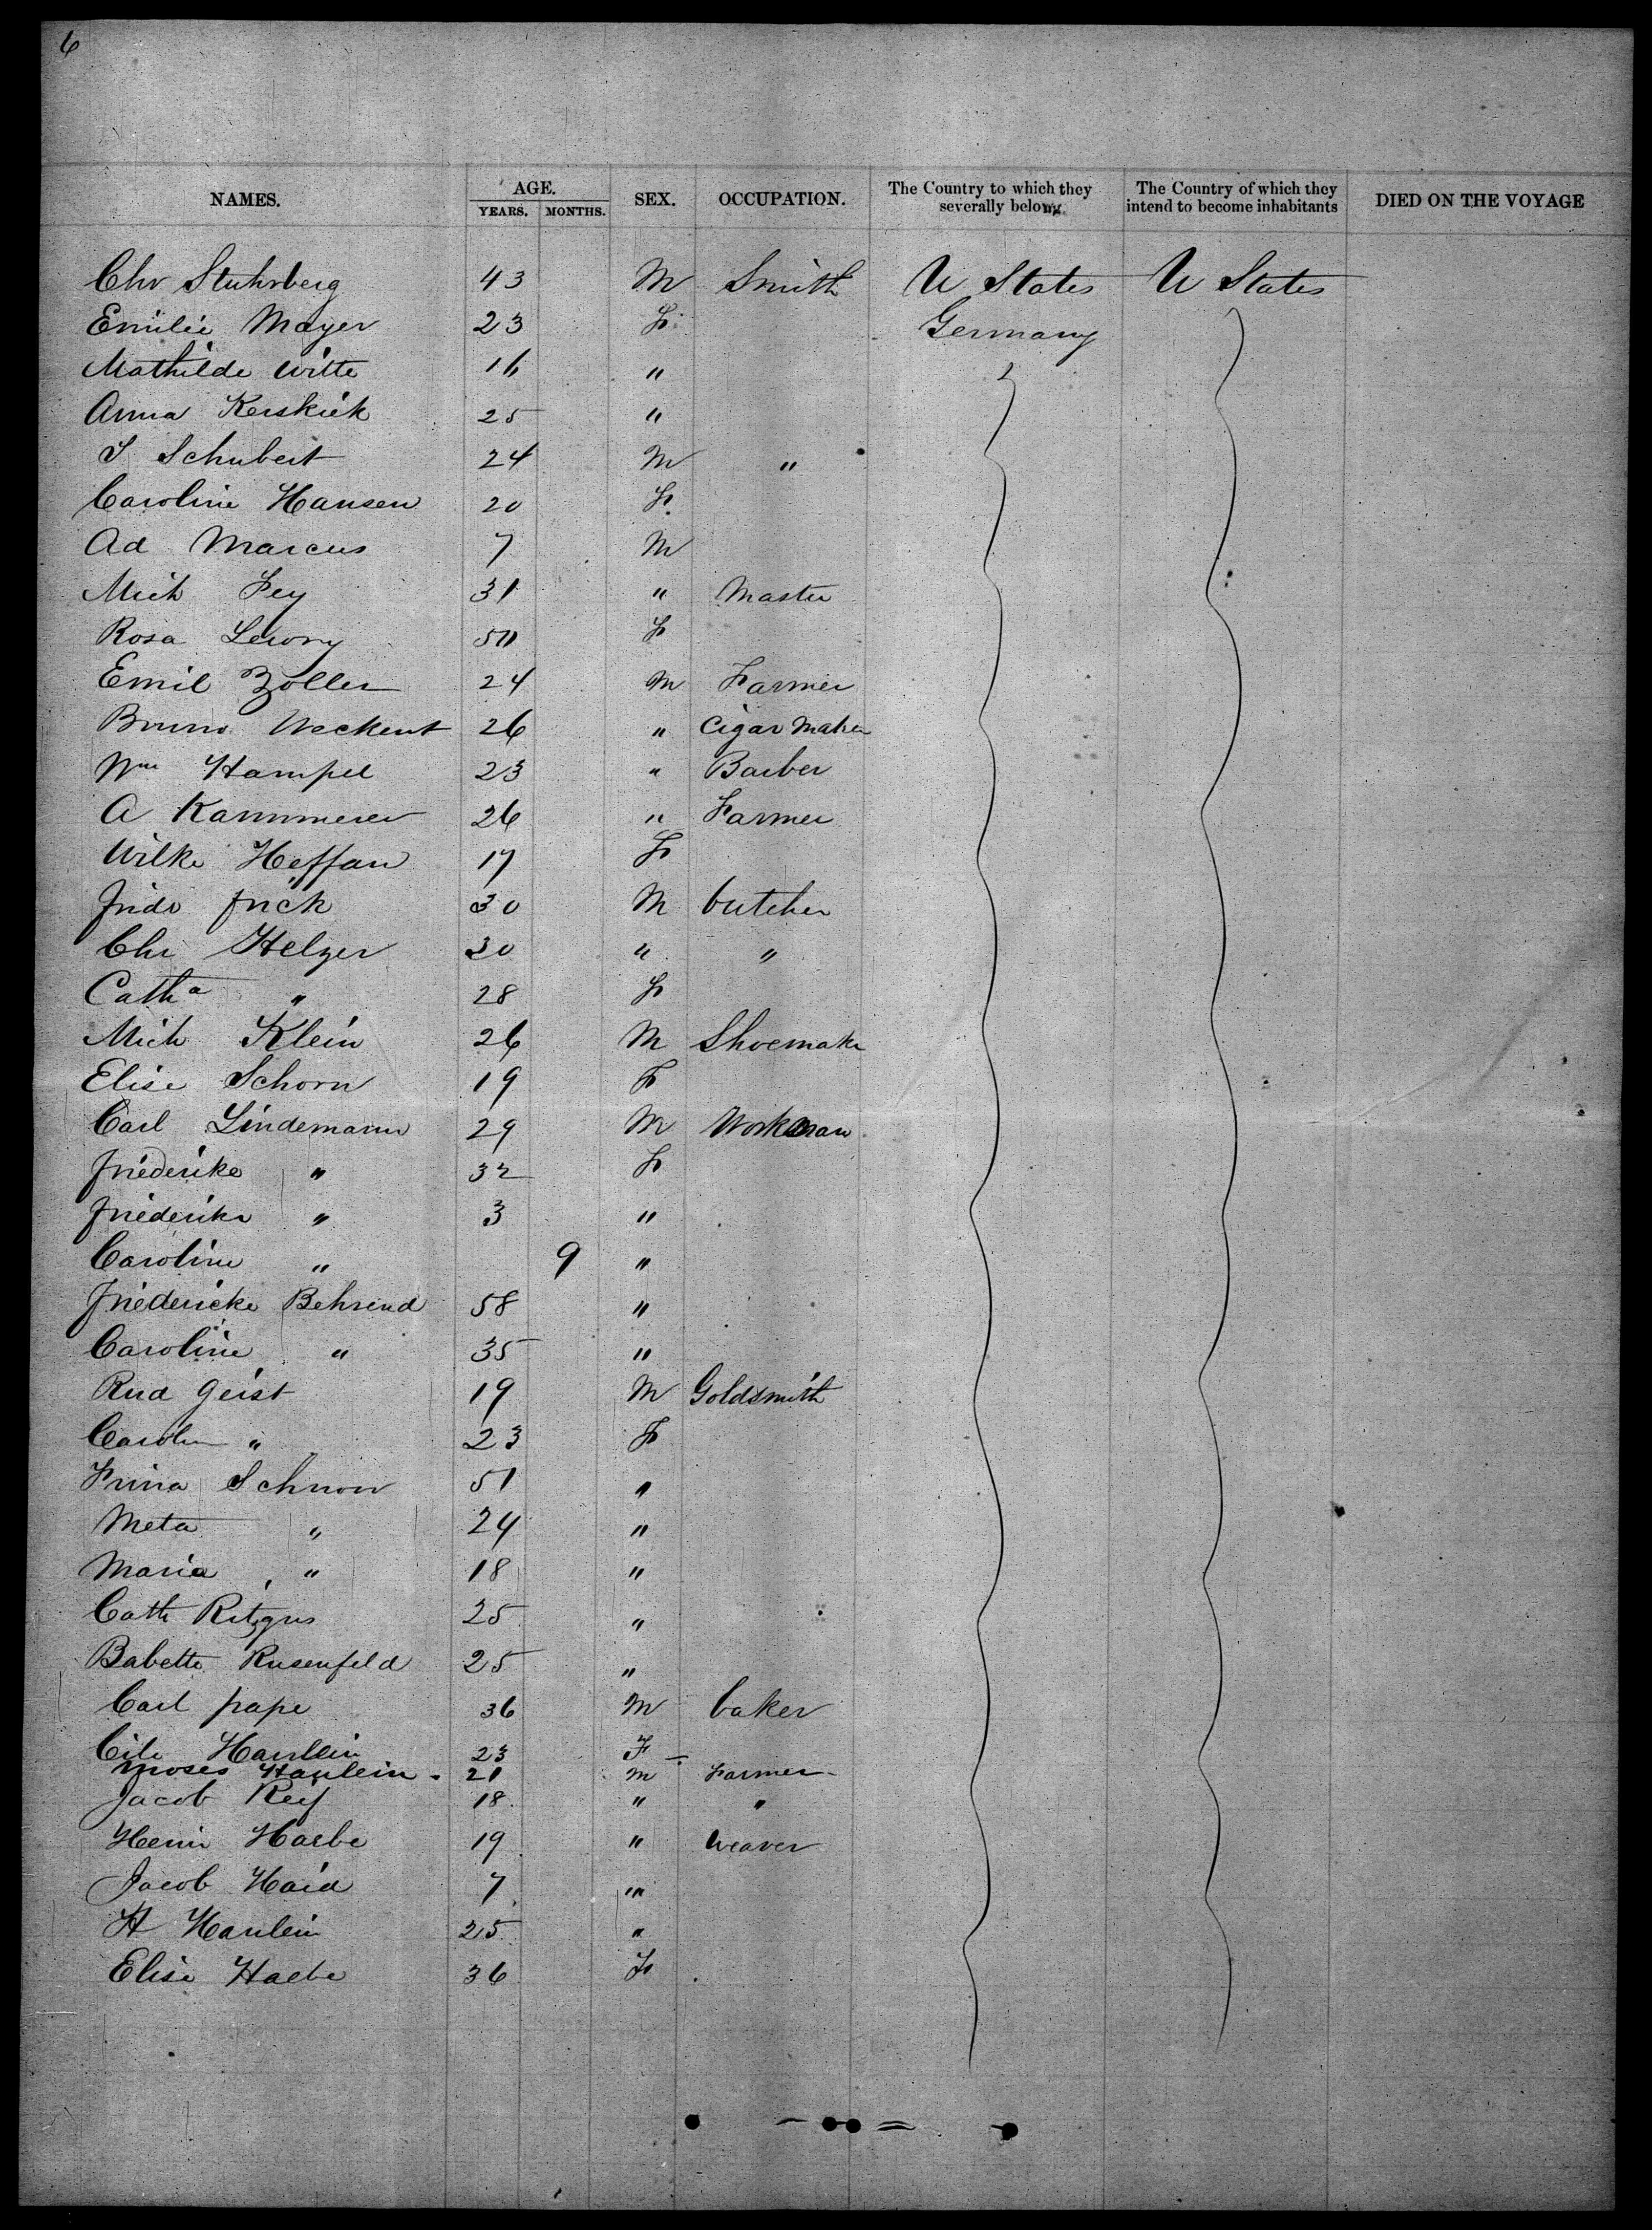 6
NAMES. AGE. SEX. OCCUPATION. The Country to which they severally belong. The Country of which they intend to become inhabitants DIED ON THE VOYAGE
YEARS. MONTHS.
Chr Stuhrberg 43 M Smith U States U States
Emilie Mayer 23 F Germany
Mathilde Witte 16 "
Anna Kerskiek 25 "
S Schubert 24 M "
Caroline Hansen 20 F
Ad Marcus 7 M
Mich Fey 31 " Master
Rosa 50 F
Emil Zoller 24 M Farmer
Bruno Weckent 26 " Cigar Maker
Wm Hampel 23 " Barber
A Kammerer 26 " Farmer
Wilke Heffan 17 F
Frick 30 M butcher
Chr Helzer 30 " "
Catha " 28 F
Mich Klein 26 M Shoemake
Elise Schorn 19 F
Carl Lindemann 29 M Workman
Friederike " 32 F
Friederike " 3 "
Caroline " 9 "
Friedericke Behrend 58 "
Caroline " 35 "
Rud Geist 19 M Goldsmith
Carolin " 23 F
Schnow 51 "
Meta " 24 "
Maria " 18 "
Cath Ritzgus 25 "
Babette Rusenfeld 25 "
Carl pape 36 M baker
Hanlein 23 F
Moses Hanlein 21 M Farmer
Jacob Reif 18 " "
Haebe 19 " Weaver
Jacob Haid 7 "
H Hanlein 25 "
Elise Haebe 36 F